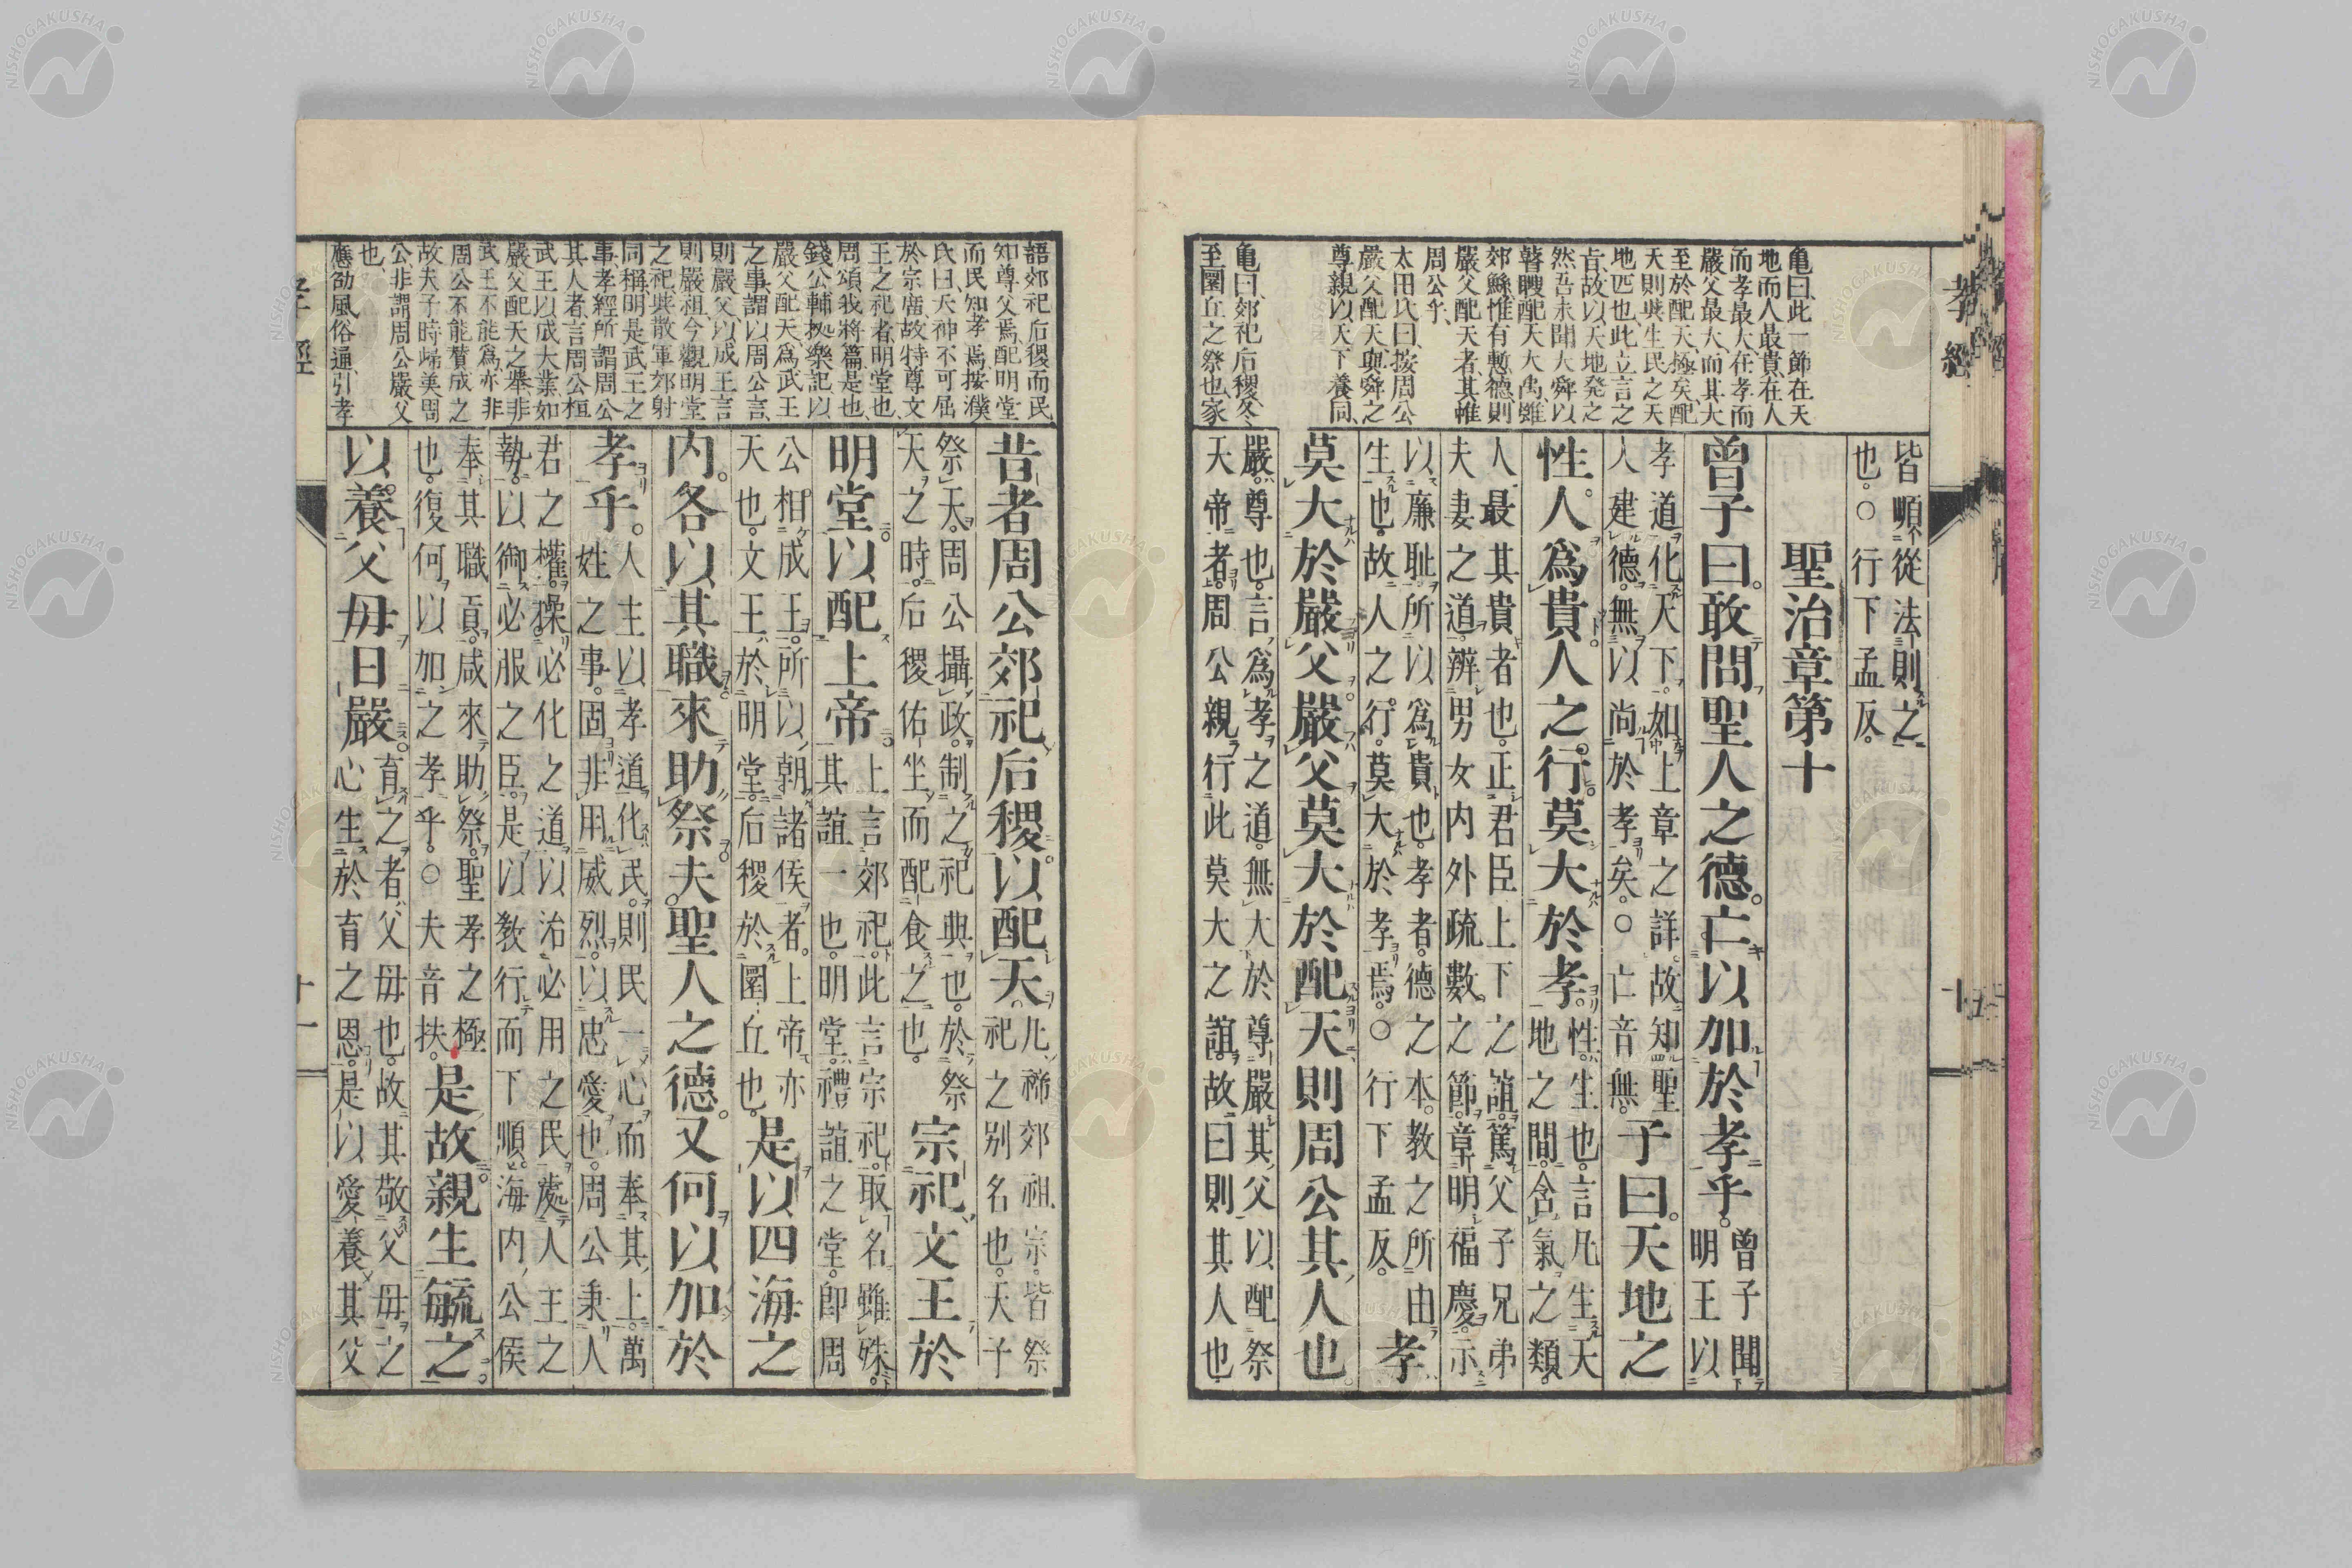 孝經
亀曰此一節在天
地而人最貴在人
而孝最大在孝而
嚴父最大而其大
至於配天極矣配
天則與生民之天
地匹也此立言之
旨故以天地発之
然吾未聞大舜以
瞽瞍配天大禹雖
郊鯀惟有慙德則
嚴父配天者其惟
周公乎
太田氏曰按周公
嚴父配天與舜之
尊親以天下養同
亀曰郊祀后稷冬
至圜丘之祭也家
皆順從法則之
也。○行下孟反。
聖治章第十
曾子曰。敢問聖人之德。亡以加於孝乎。
曾子聞
明王以
孝道化天下。如上章之詳。故知聖
人建德。無以尚於孝矣。○亡音無。
子曰。天地之
性。人爲貴。人之行莫大於孝。
性。生也。言凡生天
地之間。含氣之類。
人最其貴者也。正君臣上下之誼。篤父子兄弟
夫妻之道。辨男女内外疏數之節。章明福慶。示
以廉恥。所以爲貴也。孝者。德之本。教之所由
生也。故人之行。莫大於孝焉。○行下孟反。
孝
莫大於嚴父。嚴父莫大於配天。則周公其人也
嚴。尊也。言爲孝之道。無大於尊嚴其父。以配祭
天帝者。周公親行此莫大之誼。故曰則其人也
語郊祀后稷而民
知尊父焉配明堂
而民知孝焉按濮
氏曰天神不可屈
於宗庿故特尊文
王之祀者明堂也
周頌我將篇是也
錢公輔拠樂記以
嚴父配天爲武王
之事謂以周公言
則嚴父以成王言
則嚴祖今觀明堂
之祀與散軍郊射
同稱明是武王之
事孝經所謂周公
其人者言周公桓
武王以成大業如
嚴父配天之擧非
武王不能為亦非
周公不能賛成之
故夫子時歸美周
公非謂周公嚴父
也
應劭風俗通引孝
昔者周公郊祀后稷。以配天。
凡禘郊祖宗。皆祭
祀之别名也。天子
祭天。周公攝政。制之祀典也。於祭
天之時。后稷佑坐而配食之也。
宗祀文王於
明堂以配上帝
上言郊祀。此言宗祀。取名雖殊。
其誼一也。明堂。禮誼之堂。卽周
公相成王。所以朝諸侯者。上帝亦
天也。文王於明堂。后稷於圜丘也。
是以四海之
内。各以其職來助祭。夫聖人之德。又何以加於
孝乎。
人主以孝道化民。則民一心而奉其上。萬
姓之事。固非用威烈。以忠愛也。周公秉人
君之權。操必化之道。以治必用之民。處人主之
勢。以御必服之臣。是以教行而下順。海内公侯
奉其職貢。咸來助祭。聖孝之極
也。復何以加之孝乎。○夫音扶。
是故親生毓之。
以養父毋日嚴。
育之者。父毋也。故其敬父毋之
心生於育之恩。是以愛養其父